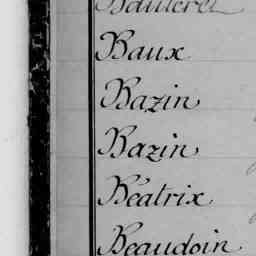 Baux
Bazin
Bazin
Béatrix
Beaudoin